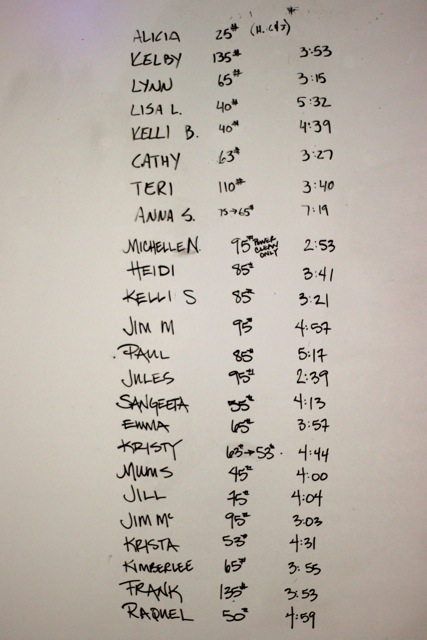 ALICIA 25#
KELBY 135# 3:53
LYNN 65# 3:15
LISA L. 40# 5:32
KELLI B. 40# 4:39
CATHY 63# 3:27
TERI 110# 3:40
ANNA S. 75→65# 7:19
MICHELLE N. 95# POWER CLEAN ONLY 2:53
HEIDI 85# 3:41
KELLI S 85# 3:21
JIM M 95# 4:57
PAUL 85# 5:17
JULES 95# 2:39
SANGEETA 55# 4:13
EMMA 65# 3:57
KRISTY 63#→53# 4:44
MUMS 45# 4:00
JILL 75# 4:04
JIM Mc 95# 3:03
KRISTA 53# 4:31
KIMBERLEE 65# 3:55
FRANK 135# 3:53
RAQUEL 50# 4:59